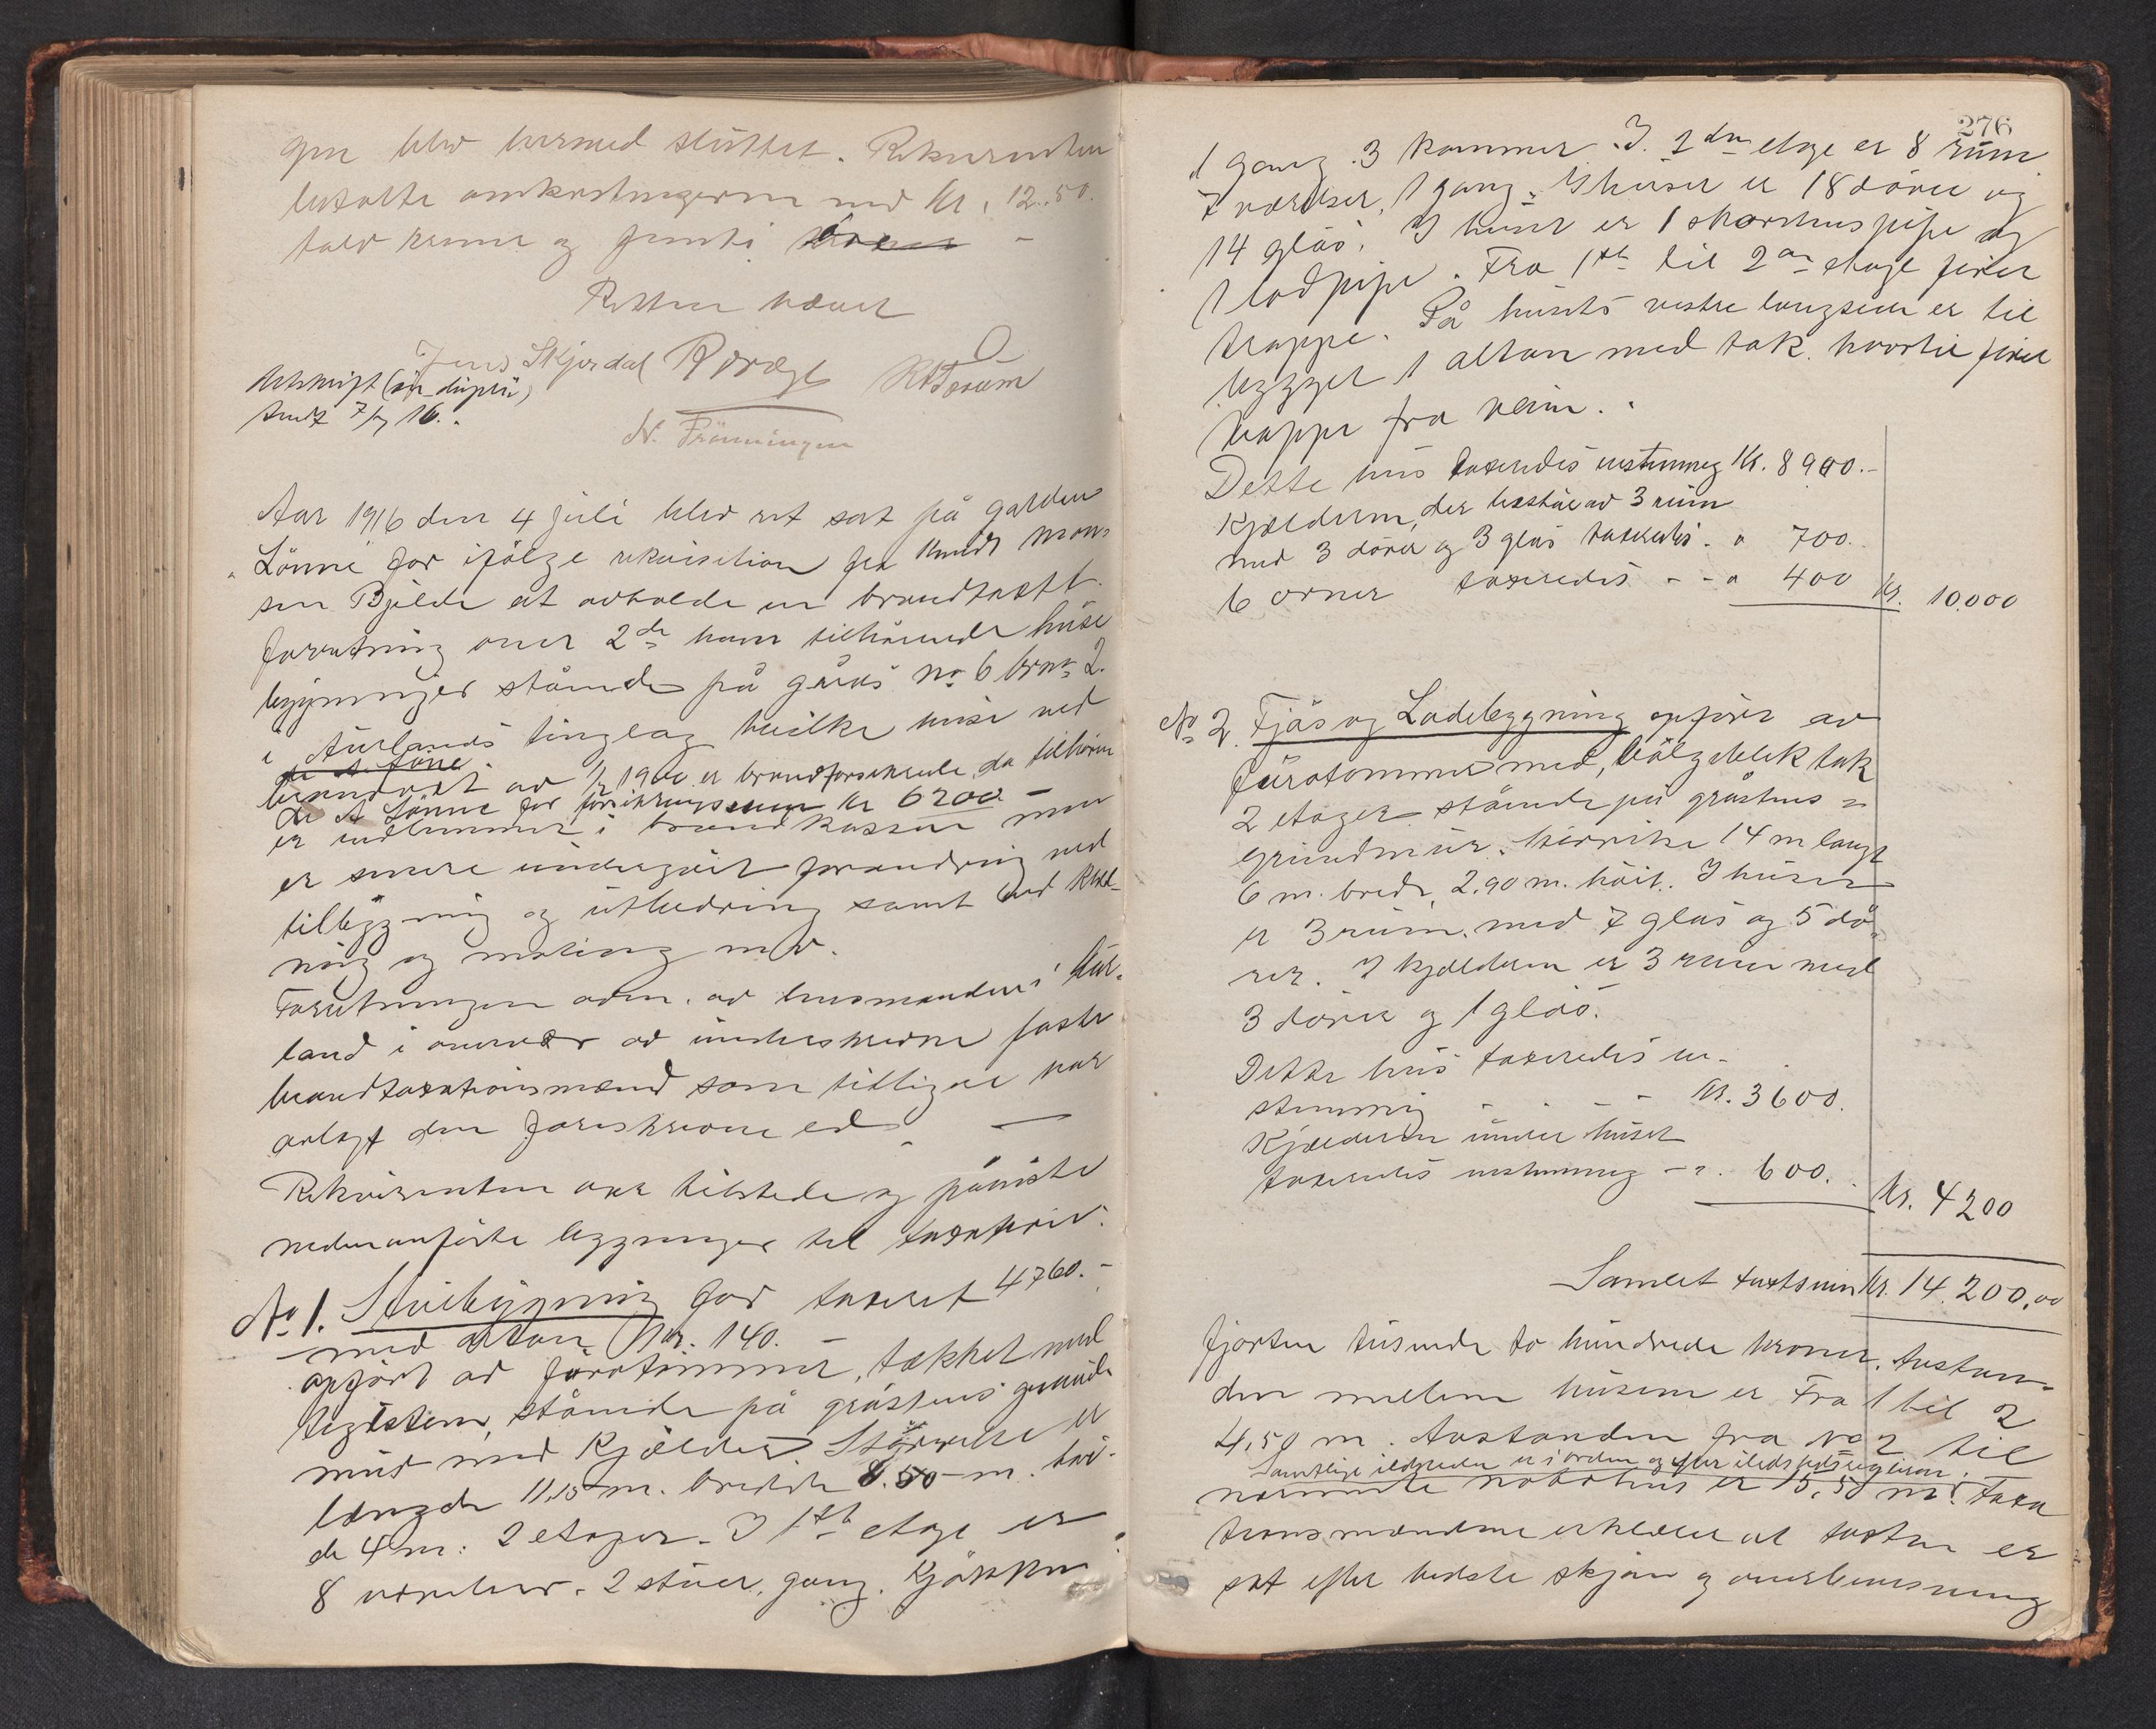 gen blev hermed sluttet. Rekvirenten
betalte omkostningerne med Kr. 12.50.
tolv kroner og femti
Retten hævet
Jens Skjerdal
N. Frönningen
Utskrift (in duplo)
sendt 7/7 16.
Aar 1916 den 4 juli blev ret sat på garden
Lönne for ifölge rekvisition fra Knudt Mon-
sen Bjelde at avholde en brandtakst
forretning over 2de ham tilhörende huse
bygninger stående på gårds No 6 brno 2.
i Aurlands tinglag hvilke huse ved
brandtakst av 1900 er brandforsikrede, da tilhörende
A Lönne for forsikringssum Kr 6200 -
er indlemmet i brandkassen men
er senere undergået forandring ved
tilbygning og utbedring samt ved kled-
ning og maling m.v.
Forretningen adm. av lensmanden i Aur-
land i overvær av underskrevne faste
brandtaxationsmænd som tidligere har
avlagt den foreskrevne ed. —
Rekvirenten var tilstede og påviste
nedenanförte bygninger til taxation.
No 1. Stuebygning för taxeret 4760.-
med altan Kr. 140. -
opfört av furutömmer, tækket med
teglsten, stående på gråstens grund
mur med Kjælder Störrelse er
længde 11,15 m. bredde 8.50 m. höi-
de 4 m: 2 etager. I 1ste etage er
8 værelser. 2 stuer, gang. Kjökken
276
1 gang. 3 kammer. I 2den etage er 8 rum
7 værelser, 1 gang. I huset er 18 dörer og
14 glas. I huset er 1 skorstenspipe og
1 lodpipe. Fra 1ste til 2den etage förer
trappe. På husets vestre langside er til
bygget 1 altan med tak. hvortil förer
trappe fra veien.
Dette hus taxeredes enstemmig Kr. 8900.-
Kjælderen, der bestaar av 3 rum
med 3 dörer og 3 glas taxeredes - " 700.
6 ovner taxeredes - - " 400 Kr. 10.000
No 2. Fjös og Ladebygning opfört av
furutömmer med, bölgeblik tak
2 etager stående på gråstens =
grundmur. Störrelse 14 m langt
6 m. bredt, 2.90 m. höit. I huset
er 3 rum. med 7 glas og 5 dö-
rer. I kjælderen er 3 rum med
3 dörer og 1 glas.
Dette hus taxeredes en-
stemmig - - - - Kr. 3600.
Kjælderen under huset
taxeredes enstemmig - ". 600.
Kr. 4200
Samlet takstsum Kr. 14.200,00
fjorten tusende to hundrede kroner. Avstan-
den mellem husene er Fra 1 til 2
4,50 m. Avstanden fra No 2 til
Samtlige ildsteder er i orden og efter ildstedsreglerne.
nærmeste nabohus er 15,50 m. Taxa
tionsmændene erklærer at taksten er
sat efter bedste skjön og overbevisning